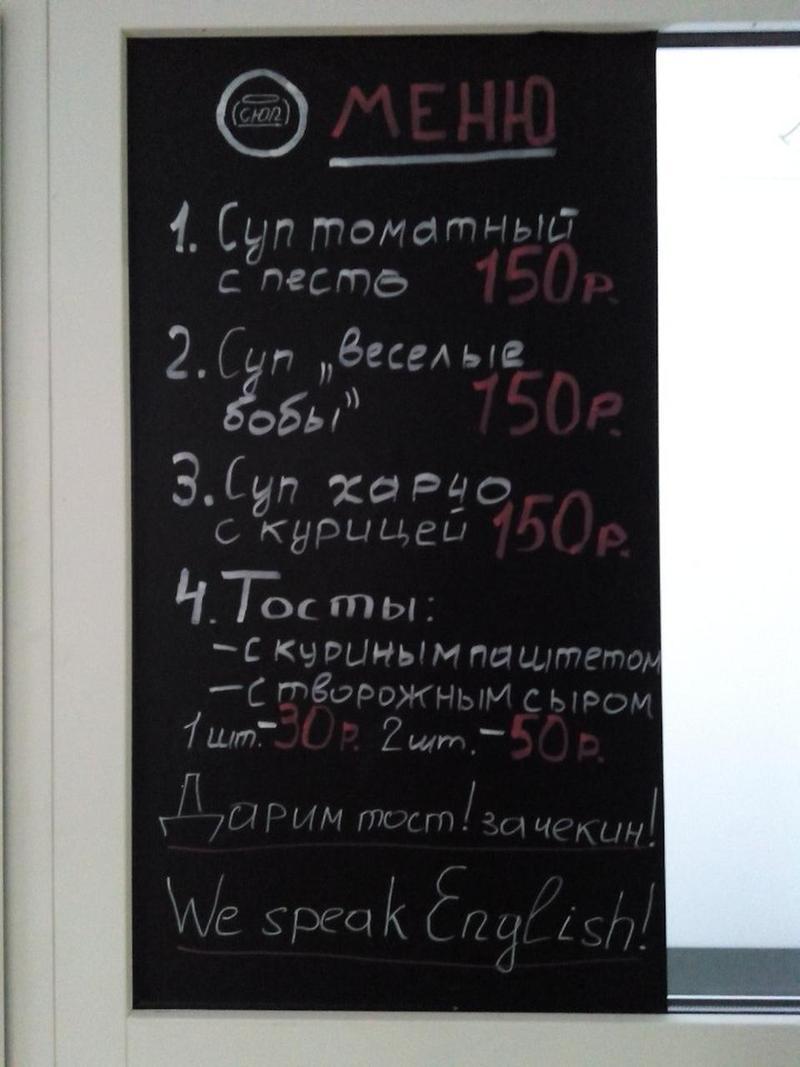 сюп МЕНЮ
1. Суп томатный
с песто 150р.
2. Суп „веселые
бобы" 150р.
3. Суп харчо
с курицей 150р.
4. Тосты:
– с куриным паштетом
– с творожным сыром
1 шт.-30р. 2 шт.-50р.
Дарим тост! за чекин!
We speak English!